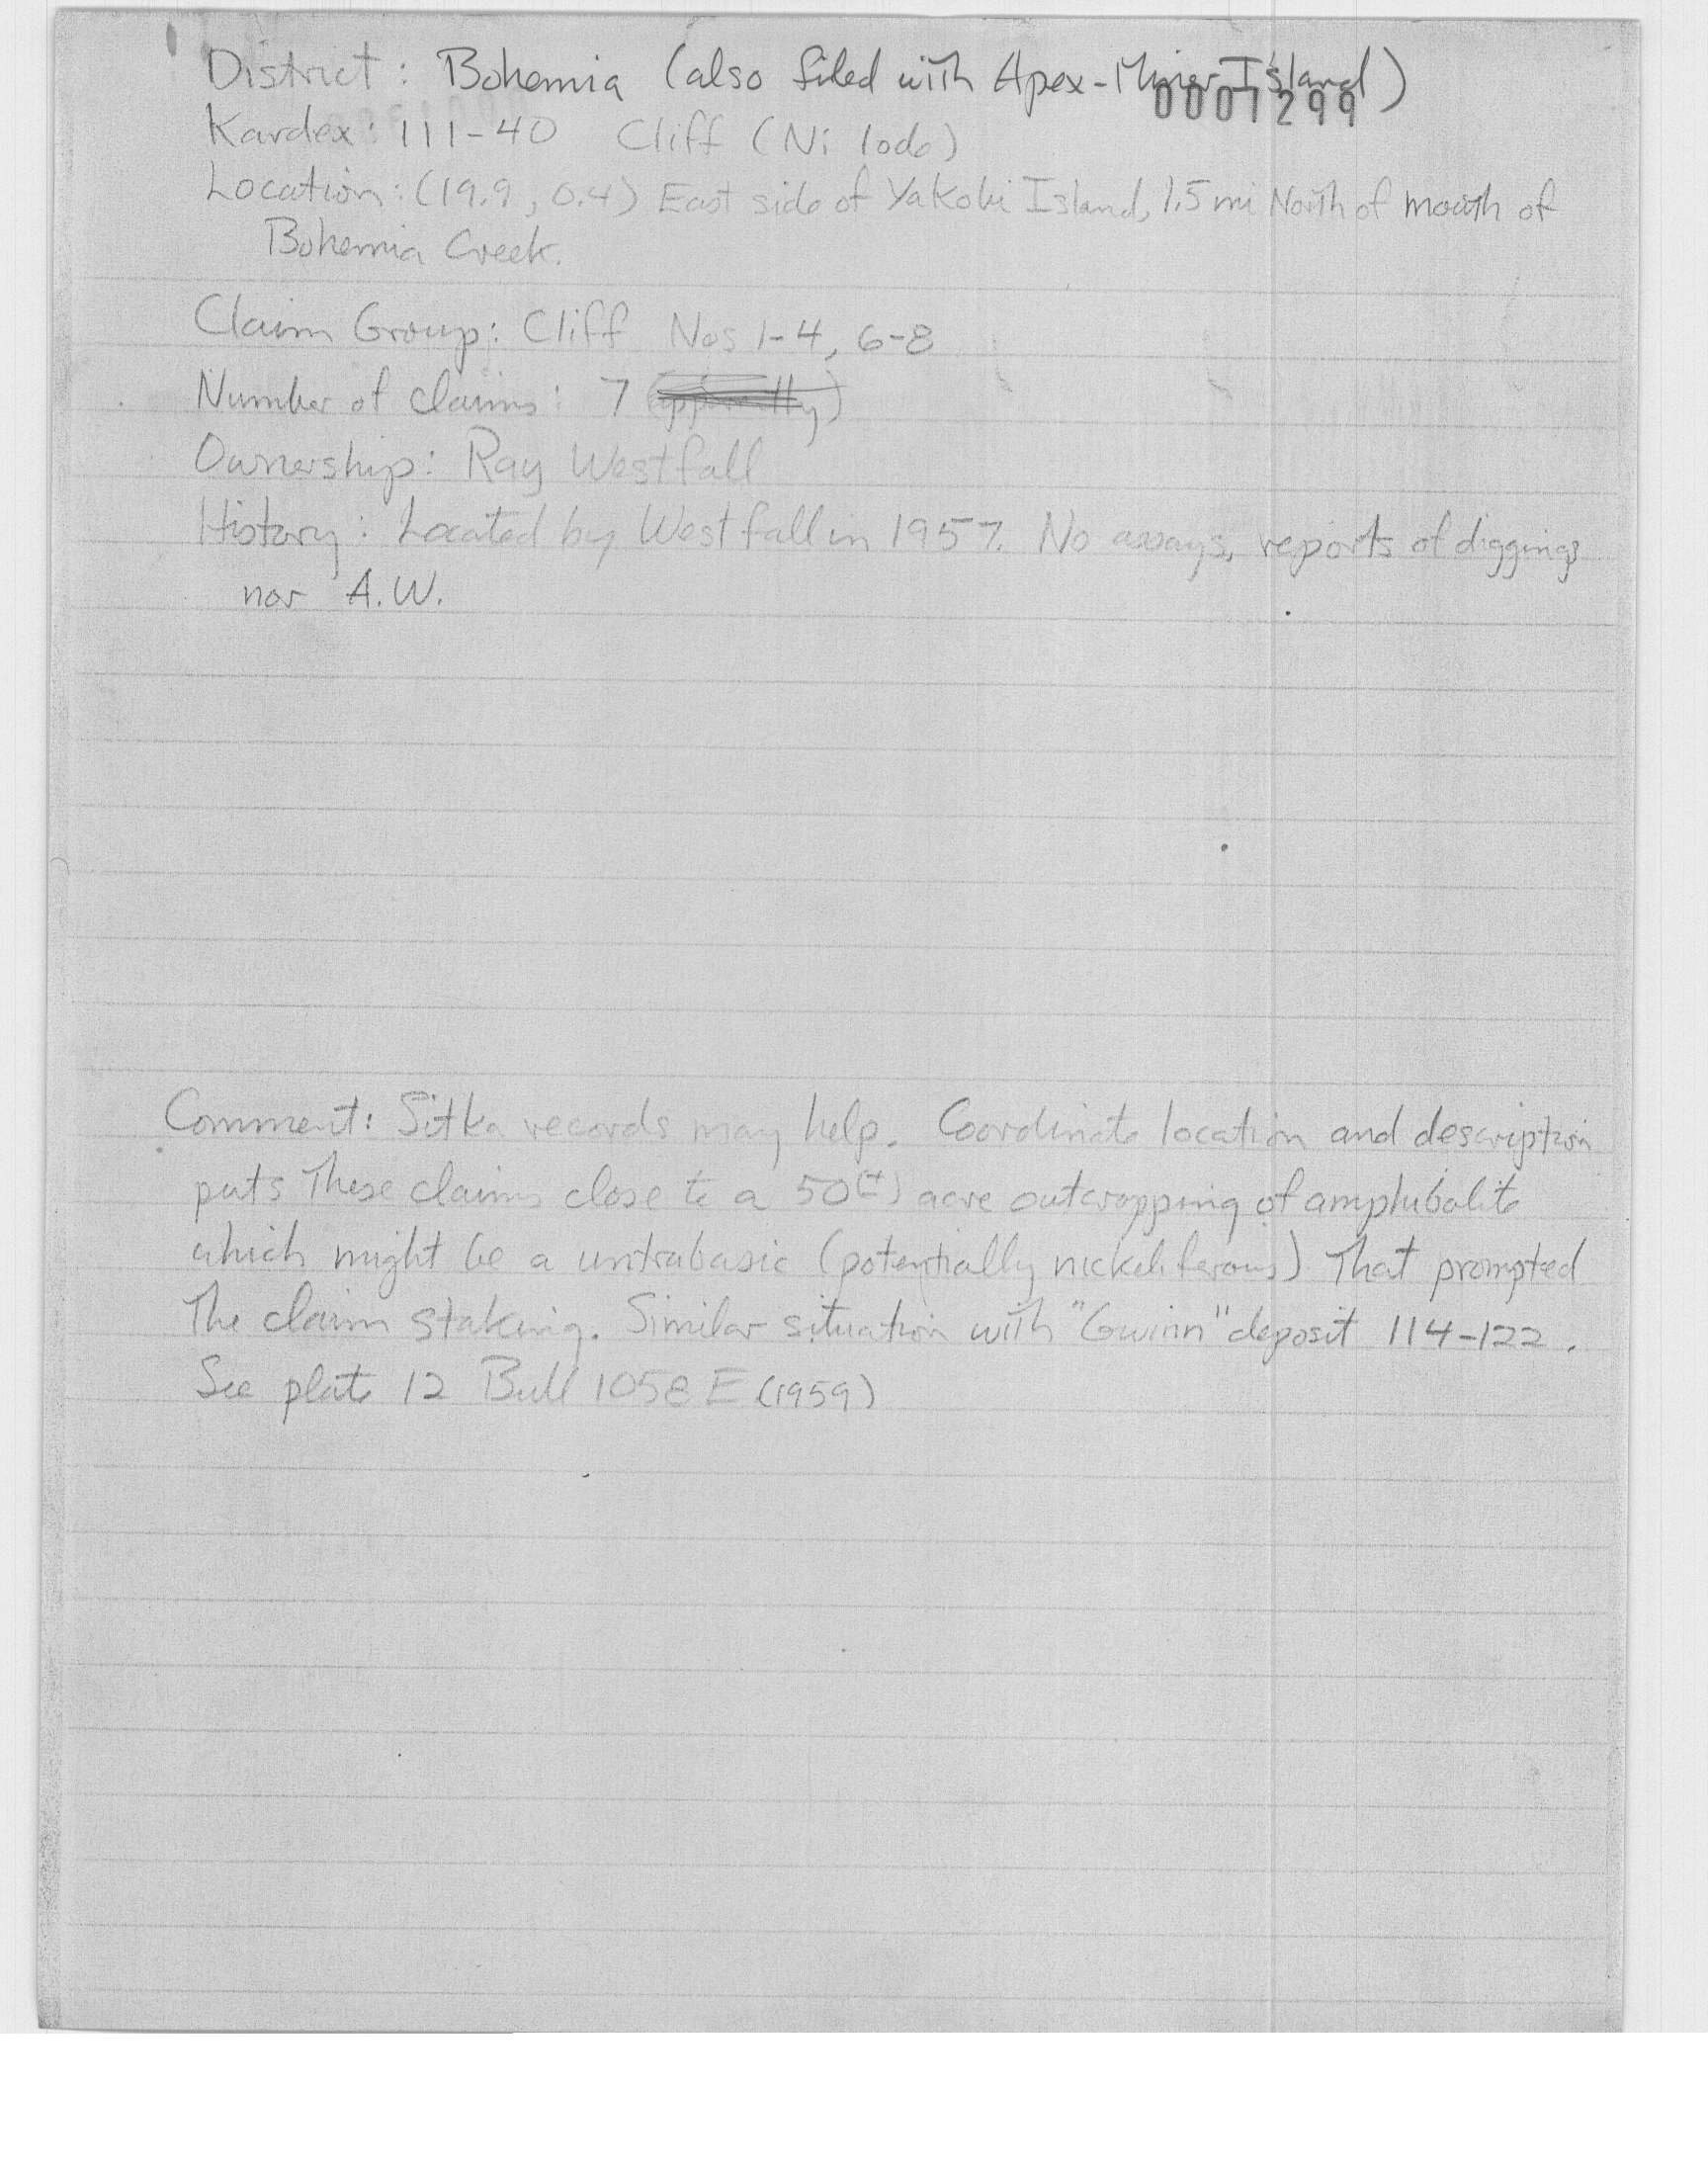 District: Bohemia (also filed with Apex-Miner Island)
0001299
Kardex: 111-40 Cliff (Ni lode)
Location: (19.9, 0.4) East side of Yakobi Island, 1.5 mi North of mouth of
Bohemia Creek.
Claim Group: Cliff Nos 1-4, 6-8
Number of claims: 7 (apparently)
Ownership: Ray Westfall
History: Located by Westfall in 1957. No assays, reports of diggings
nor A.W.
Comment: Sitka records may help. Coordinate location and description
puts these claims close to a 50(±) acre outcropping of amphibolite
which might be a untrabasic (potentially nickeliferous) that prompted
the claim staking. Similar situation with "Gwinn" deposit 114-122.
See plate 12 Bull 1058 E (1959)